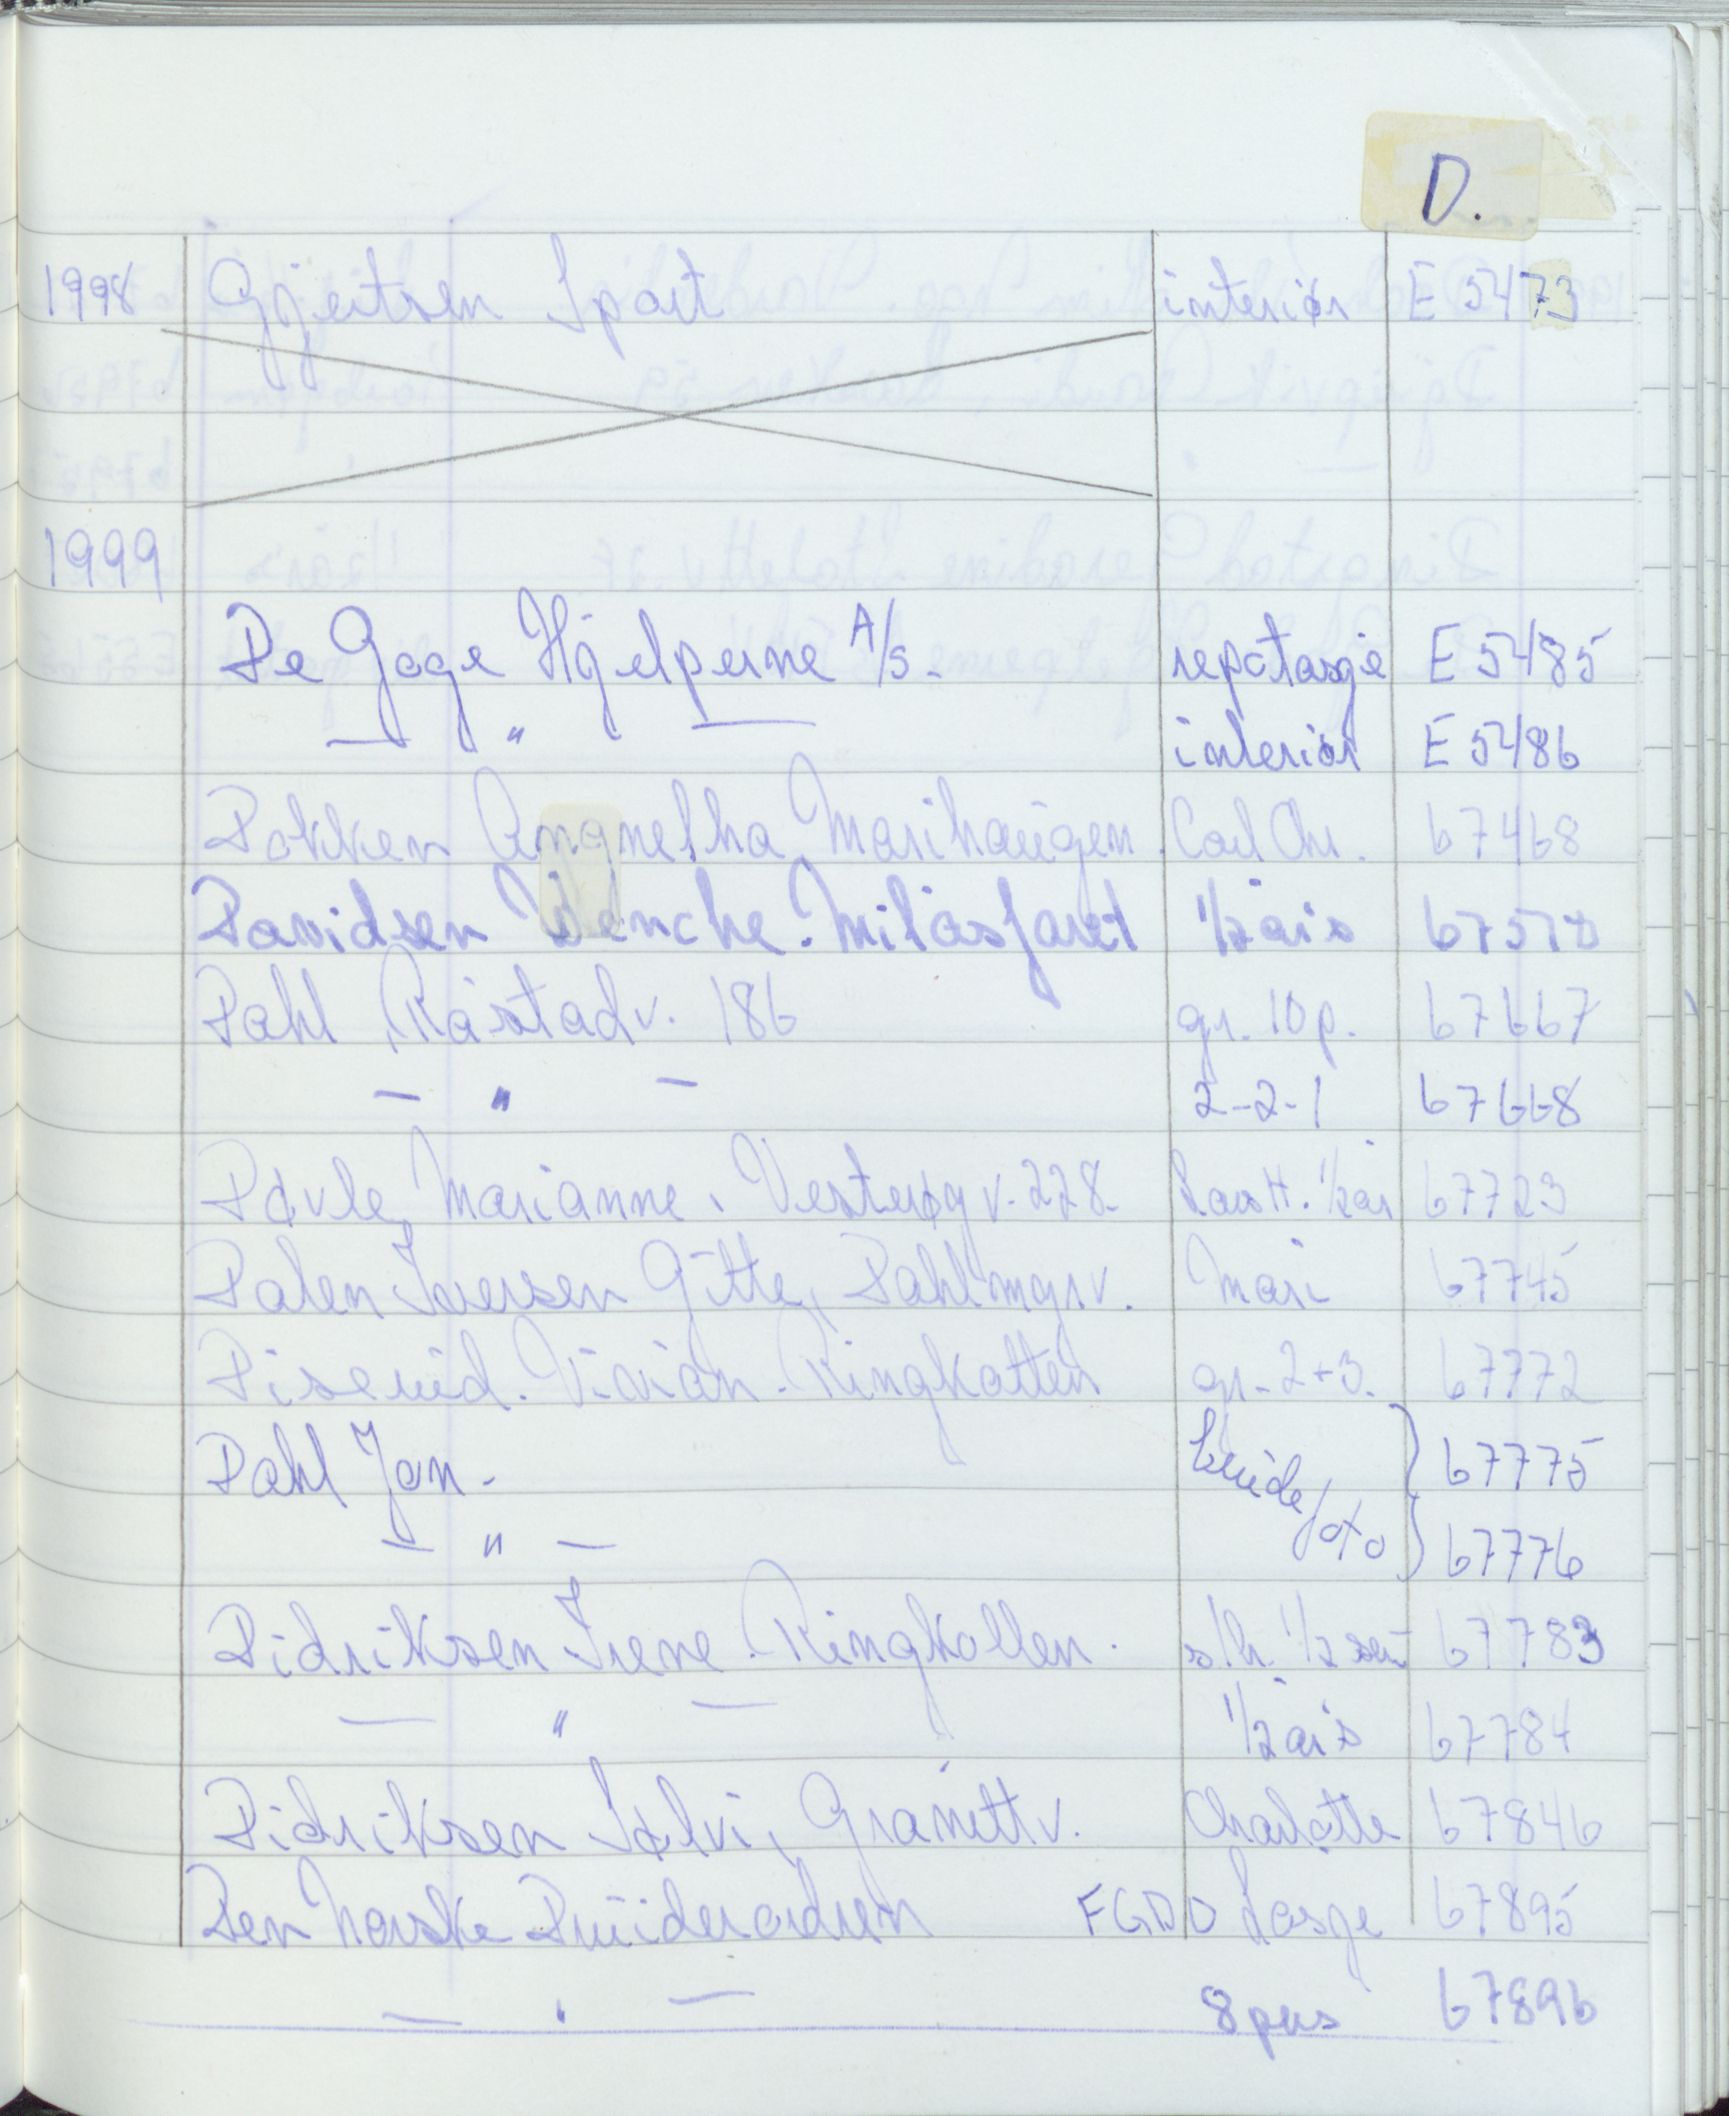 D.
1998 Gjertsen Sport interiør E 5473
1999
De Gode Hjelperne A/S. repotasje E 5485
— " — interiør E 5486
Dokken Angnetha Marihaugen. Carl Chr. 67468
Davidsen Wenche. Milåsfaret 1/2 års
Dahl, Råstadv. 186 gr. 10 p. 67667
— " — 2-2-1 67668
Døvle, Marianne, Vesterøyv. 228. Lars H. 1/2 år 67723
Dalen Iversen Gitte, Dahlmgrv. Mari 67745
Diserud. Vivian. Ringkollen gr. 2+3. 67772
Dahl Jan. brudefoto } 67775
— " — } 67776
Didriksen Irene. Ringkollen. s/h. 1/2 67783
— " — 1/2 års 67784
Didriksen Sølvi, Granittv. Charlotte 67846
Den Norske Druideorden FGDO Losje 67895
— " — 8 pers 67896